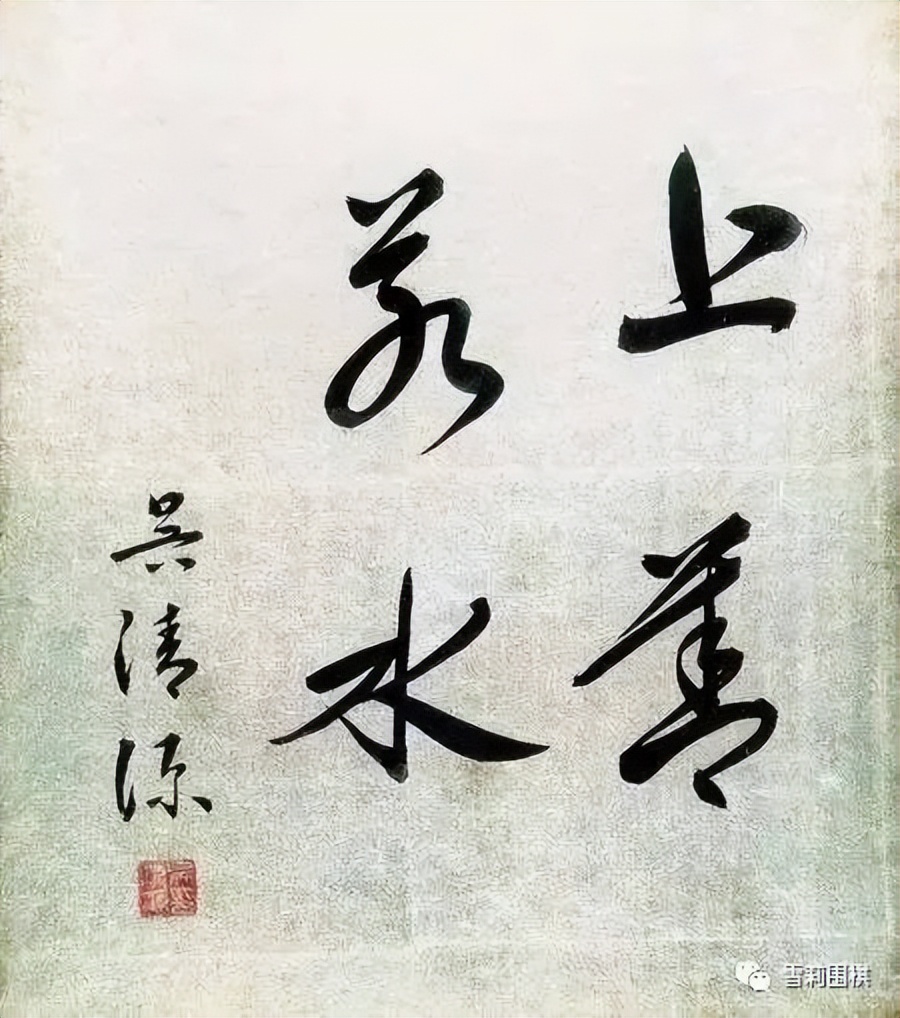 上善
若水
吴清源
雪莉围棋